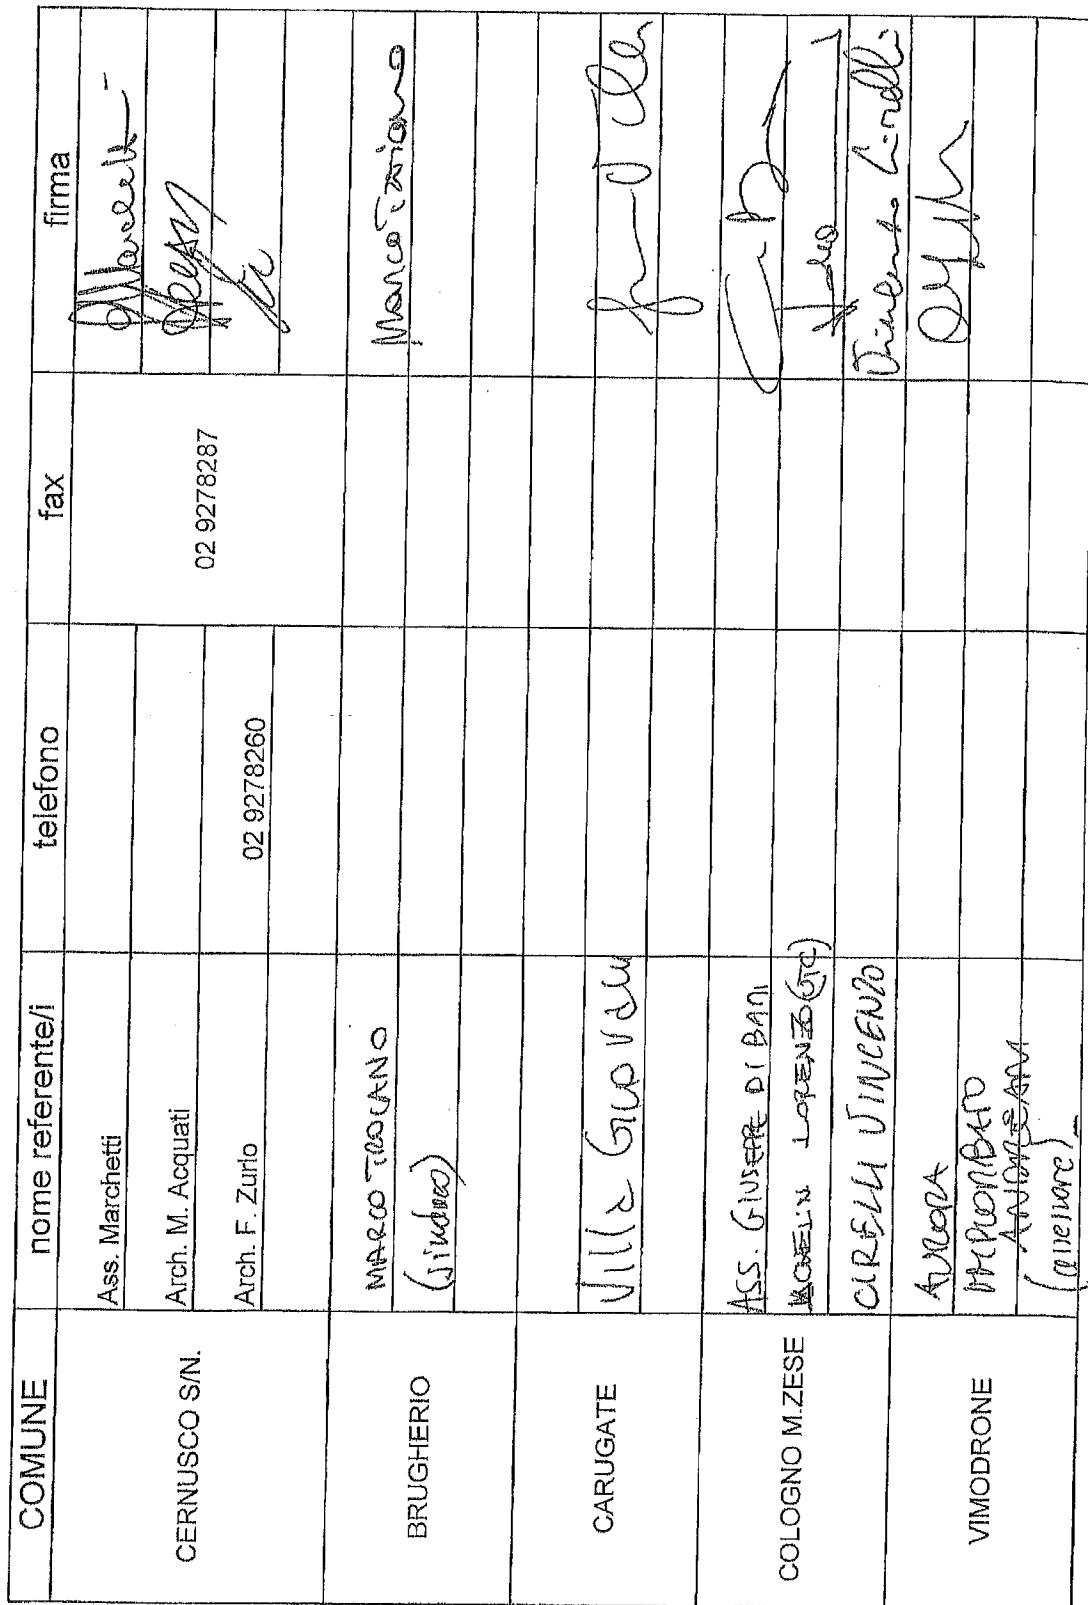 COMUNE nome referente/i telefono fax firma
CERNUSCO S/N.
Ass. Marchetti
Arch. M. Acquati
Arch. F. Zurlo 02 9278260
02 9278287
BRUGHERIO
MARCO TROIANO Marco Troiano
(sindaco)
CARUGATE
Villa Giovanni
COLOGNO M.ZESE
ASS. GIUSEPPE DI BARI
LORENZO (GTC)
CIRELLI VINCENZO Vincenzo Cirelli
VIMODRONE
AURORA
IMPIOMBATO
ANDREANA